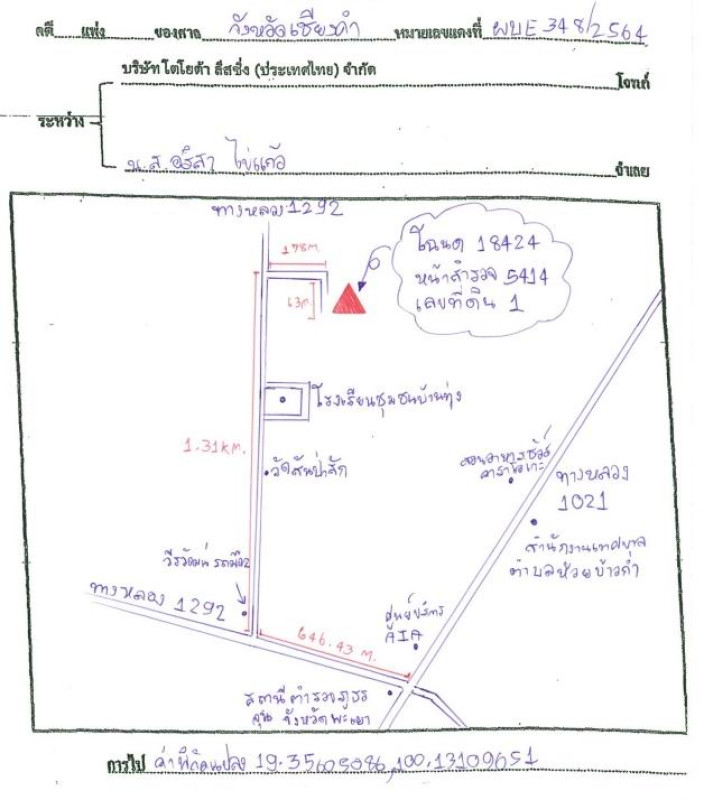 คดี แพ่ง ของศาล จังหวัดเชียงคำ หมายเลขแดงที่ ผบE 348/2564
บริษัท โตโยต้า ลีสซิ่ง (ประเทศไทย) จำกัด โจทก์
ระหว่าง
น.ส. อริสา ไข่แก้ว จำเลย
ทางหลวง 1292
โฉนด 18424
หน้าสำรวจ 5414
เลขที่ดิน 1
178m.
63m.
โรงเรียนชุมชนบ้านทุ่ง
1.31KM.
วัดสันป่าสัก
สวนอาหารชัวร์
คาราโอเกะ
ทางหลวง
1021
สำนักงานเทศบาล
ตำบลห้วยข้าวก่ำ
วีรวัฒน์ รถมือ2
ทางหลวง 1292
646.43 M.
ศูนย์บริการ
AIA
สถานีตำรวจภูธร
จุน จังหวัดพะเยา
การไป ค่าพิกัดแปลง 19.35605086,100.13109651